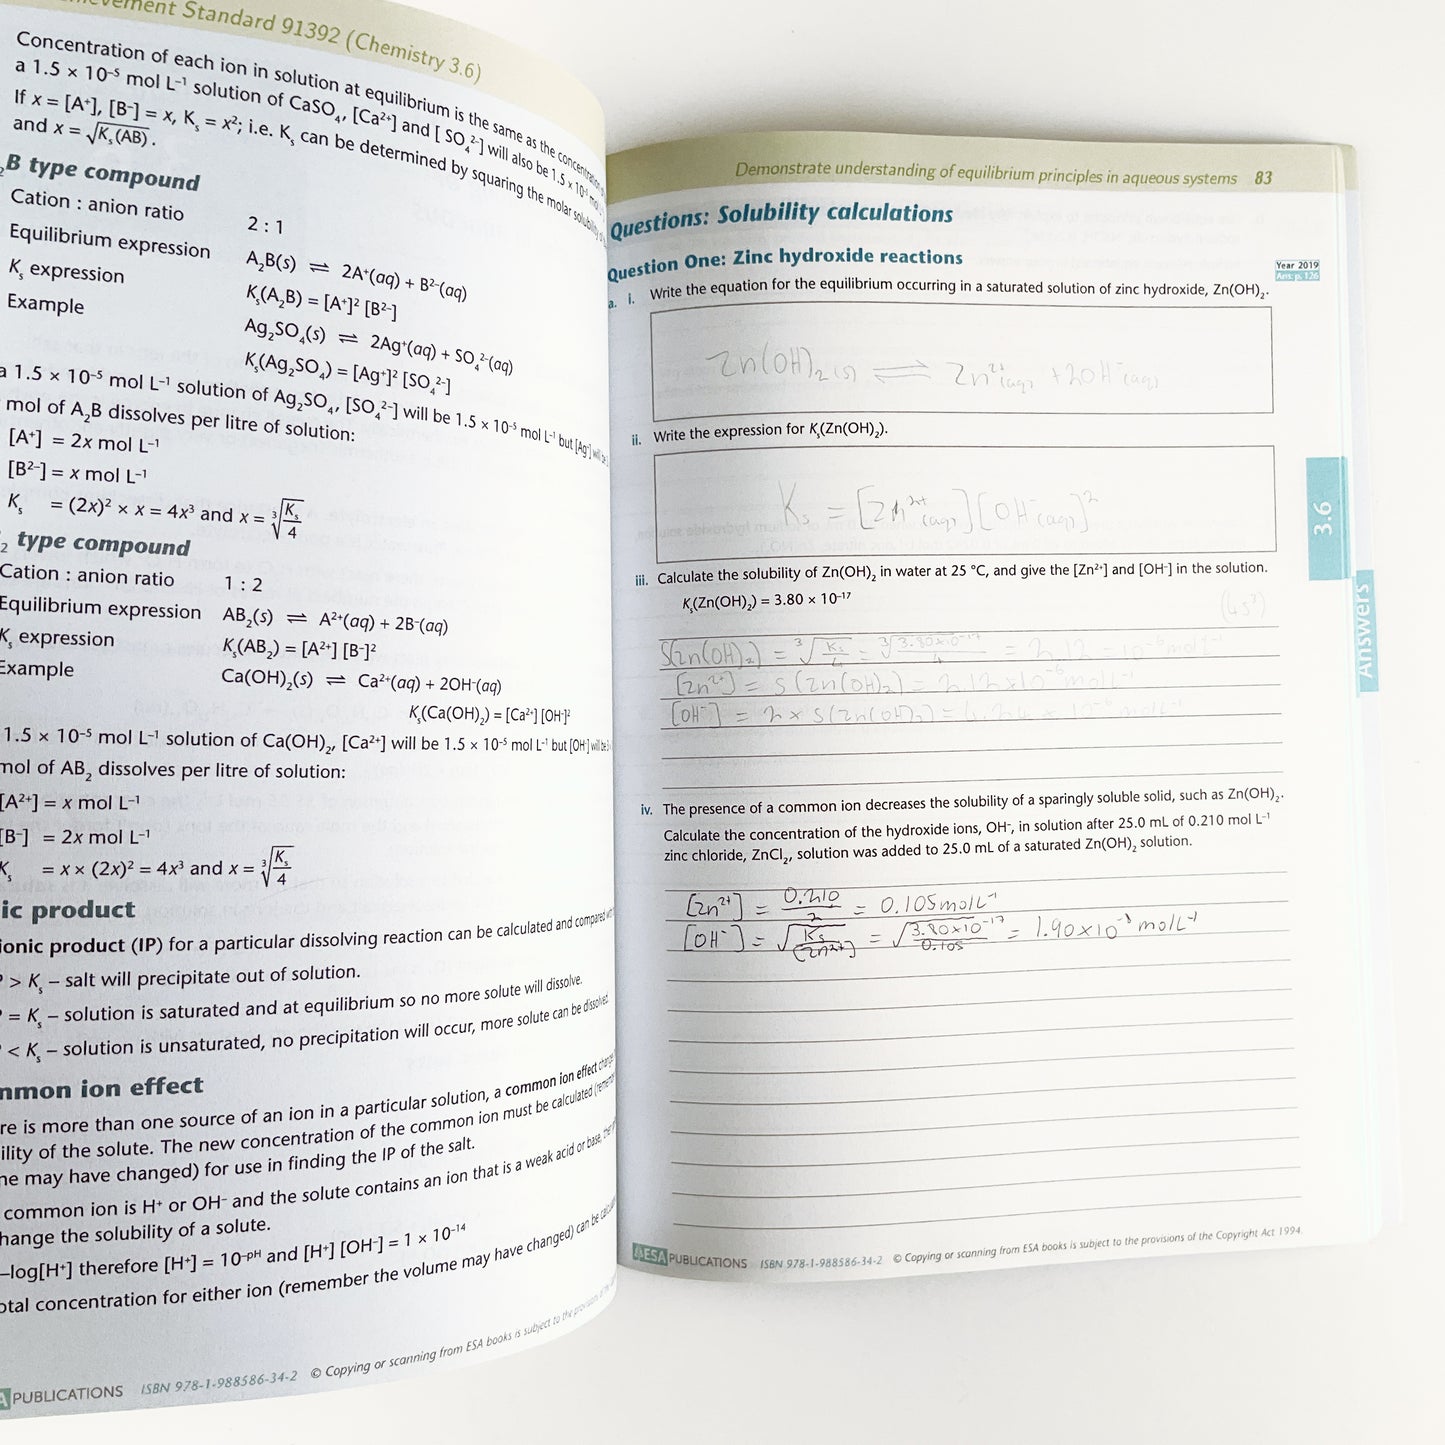 ement Standard 91392 (Chemistry 3.6)
Concentration of each ion in solution at equilibrium is the same as the
a 1.5 × 10⁻⁵ mol L⁻¹ solution of CaSO₄, [Ca²⁺] and [ SO₄²⁻] will also be 1.5 × 10⁻⁵
If x = [A⁺], [B⁻] = x, Kₛ = x²; i.e. Kₛ can be determined by squaring the molar solubility
and x = √Kₛ(AB).
₂B type compound
Cation : anion ratio 2 : 1
Equilibrium expression A₂B(s) ⇌ 2A⁺(aq) + B²⁻(aq)
Kₛ expression Kₛ(A₂B) = [A⁺]² [B²⁻]
Example Ag₂SO₄(s) ⇌ 2Ag⁺(aq) + SO₄²⁻(aq)
Kₛ(Ag₂SO₄) = [Ag⁺]² [SO₄²⁻]
a 1.5 × 10⁻⁵ mol L⁻¹ solution of Ag₂SO₄, [SO₄²⁻] will be 1.5 × 10⁻⁵ mol L⁻¹ but [Ag⁺] will be
mol of A₂B dissolves per litre of solution:
[A⁺] = 2x mol L⁻¹
[B²⁻] = x mol L⁻¹
Kₛ = (2x)² × x = 4x³ and x = ∛(Kₛ/4)
₂ type compound
Cation : anion ratio 1 : 2
Equilibrium expression AB₂(s) ⇌ A²⁺(aq) + 2B⁻(aq)
Kₛ expression Kₛ(AB₂) = [A²⁺] [B⁻]²
Example Ca(OH)₂(s) ⇌ Ca²⁺(aq) + 2OH⁻(aq)
Kₛ(Ca(OH)₂) = [Ca²⁺] [OH⁻]²
1.5 × 10⁻⁵ mol L⁻¹ solution of Ca(OH)₂, [Ca²⁺] will be 1.5 × 10⁻⁵ mol L⁻¹ but [OH⁻] will be
mol of AB₂ dissolves per litre of solution:
[A²⁺] = x mol L⁻¹
[B⁻] = 2x mol L⁻¹
Kₛ = x × (2x)² = 4x³ and x = ∛(Kₛ/4)
ic product
ionic product (IP) for a particular dissolving reaction can be calculated and compared
> Kₛ – salt will precipitate out of solution.
= Kₛ – solution is saturated and at equilibrium so no more solute will dissolve.
< Kₛ – solution is unsaturated, no precipitation will occur, more solute can be dissolved.
mmon ion effect
re is more than one source of an ion in a particular solution, a common ion effect
ility of the solute. The new concentration of the common ion must be calculated
me may have changed) for use in finding the IP of the salt.
common ion is H⁺ or OH⁻ and the solute contains an ion that is a weak acid or base,
hange the solubility of a solute.
–log[H⁺] therefore [H⁺] = 10⁻ᵖᴴ and [H⁺] [OH⁻] = 1 × 10⁻¹⁴
otal concentration for either ion (remember the volume may have changed) can be
A PUBLICATIONS ISBN 978-1-988586-34-2 © Copying or scanning from ESA books is subject to the provisions of the
Demonstrate understanding of equilibrium principles in aqueous systems 83
Questions: Solubility calculations
Question One: Zinc hydroxide reactions
Year 2019
Ans: p. 126
a. i. Write the equation for the equilibrium occurring in a saturated solution of zinc hydroxide, Zn(OH)₂.
Zn(OH)₂(s) ⇌ Zn²⁺(aq) + 2OH⁻(aq)
ii. Write the expression for Kₛ(Zn(OH)₂).
Kₛ = [Zn²⁺(aq)][OH⁻(aq)]²
iii. Calculate the solubility of Zn(OH)₂ in water at 25 °C, and give the [Zn²⁺] and [OH⁻] in the solution.
Kₛ(Zn(OH)₂) = 3.80 × 10⁻¹⁷
(4s³)
S(Zn(OH)₂) = ∛(Kₛ/4) = ∛(3.80×10⁻¹⁷/4) = 2.12 = 10⁻⁶ mol L⁻¹
[Zn²⁺] = S(Zn(OH)₂) = 2.12×10⁻⁶ mol L⁻¹
[OH⁻] = 2 × S(Zn(OH)₂) = 4.24 × 10⁻⁶ mol L⁻¹
iv. The presence of a common ion decreases the solubility of a sparingly soluble solid, such as Zn(OH)₂.
Calculate the concentration of the hydroxide ions, OH⁻, in solution after 25.0 mL of 0.210 mol L⁻¹
zinc chloride, ZnCl₂, solution was added to 25.0 mL of a saturated Zn(OH)₂ solution.
[Zn²⁺] = 0.210/2 = 0.105 mol L⁻¹
[OH⁻] = √(Kₛ/[Zn²⁺]) = √(3.80×10⁻¹⁷/0.105) = 1.90×10⁻⁸ mol L⁻¹
3.6
Answers
ESA PUBLICATIONS ISBN 978-1-988586-34-2 © Copying or scanning from ESA books is subject to the provisions of the Copyright Act 1994.